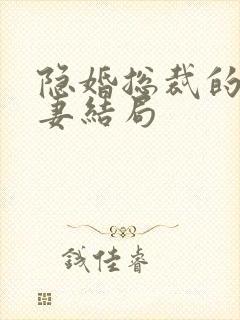 隐婚总裁的
妻结局
钱佳睿